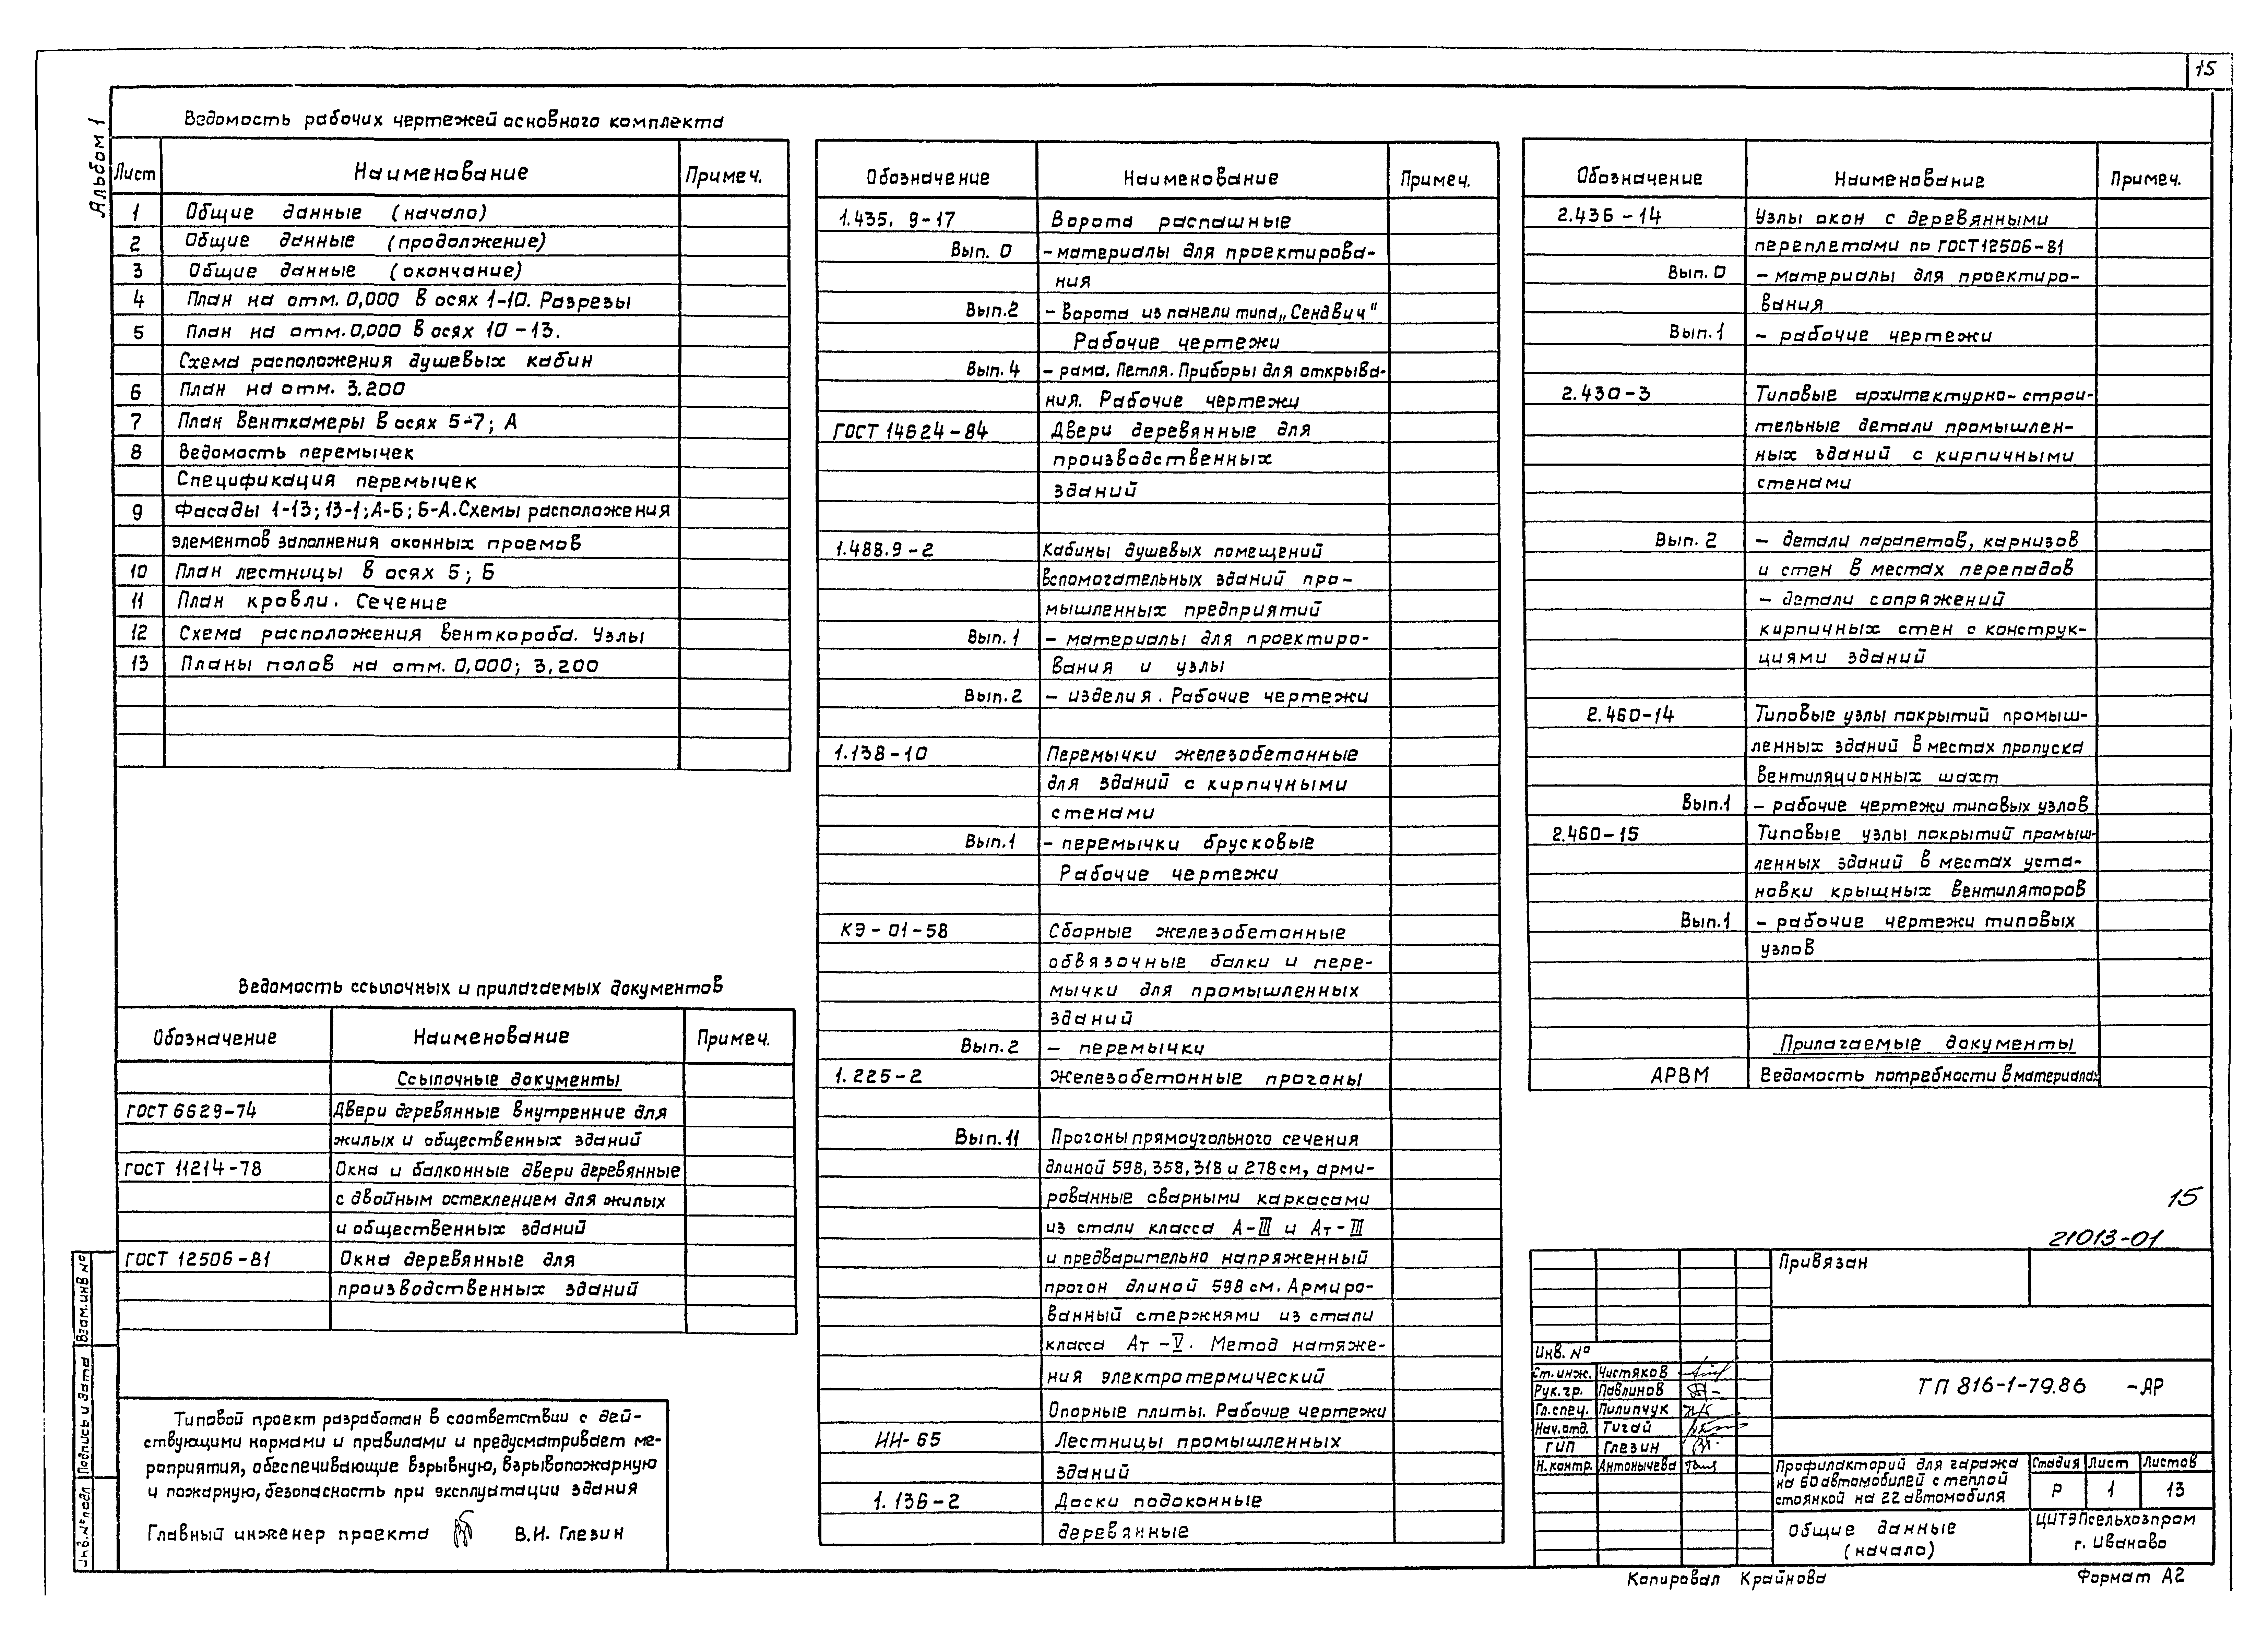 15
Альбом 1
Ведомость рабочих чертежей основного комплекта
Лист Наименование Примеч.
1 Общие данные (начало)
2 Общие данные (продолжение)
3 Общие данные (окончание)
4 План на отм. 0,000 в осях 1-10. Разрезы
5 План на отм. 0,000 в осях 10-13.
Схема расположения душевых кабин
6 План на отм. 3.200
7 План венткамеры в осях 5-7; А
8 Ведомость перемычек
Спецификация перемычек
9 Фасады 1-13; 13-1; А-Б; Б-А. Схемы расположения
элементов заполнения оконных проемов
10 План лестницы в осях 5; Б
11 План кровли. Сечение
12 Схема расположения венткороба. Узлы
13 Планы полов на отм. 0,000; 3,200
Ведомость ссылочных и прилагаемых документов
Обозначение Наименование Примеч.
Ссылочные документы
ГОСТ 6629-74 Двери деревянные внутренние для
жилых и общественных зданий
ГОСТ 11214-78 Окна и балконные двери деревянные
с двойным остеклением для жилых
и общественных зданий
ГОСТ 12506-81 Окна деревянные для
производственных зданий
Типовой проект разработан в соответствии с дей-
ствующими нормами и правилами и предусматривает ме-
роприятия, обеспечивающие взрывную, взрывопожарную
и пожарную, безопасность при эксплуатации здания
Главный инженер проекта В.И. Глезин
Взам. инв №
Подпись и дата
Инв. № подл
Обозначение Наименование Примеч.
1.435. 9-17 Ворота распашные
Вып. 0 - материалы для проектирова-
ния
Вып. 2 - Ворота из панели типа „Сендвич"
Рабочие чертежи
Вып. 4 - рама. Петля. Приборы для открыва-
ния. Рабочие чертежи
ГОСТ 14624-84 Двери деревянные для
производственных
зданий
1.488.9-2 Кабины душевых помещений
вспомогательных зданий про-
мышленных предприятий
Вып. 1 - материалы для проектиро-
вания и узлы
Вып. 2 - изделия. Рабочие чертежи
1.138-10 Перемычки железобетонные
для зданий с кирпичными
стенами
Вып. 1 - перемычки брусковые
Рабочие чертежи
КЭ-01-58 Сборные железобетонные
обвязочные балки и пере-
мычки для промышленных
зданий
Вып. 2 - перемычки
1.225-2 Железобетонные прогоны
Вып. 11 Прогоны прямоугольного сечения
длиной 598, 358, 318 и 278 см, арми-
рованные сварными каркасами
из стали класса А-III и Ат-III
и предварительно напряженный
прогон длиной 598 см. Армиро-
ванный стержнями из стали
класса Ат-V. Метод натяже-
ния электротермический
Опорные плиты. Рабочие чертежи
ИИ-65 Лестницы промышленных
зданий
1.136-2 Доски подоконные
деревянные
Обозначение Наименование Примеч.
2.436-14 Узлы окон с деревянными
переплетами по ГОСТ 12506-81
Вып. 0 - материалы для проектиро-
вания
Вып. 1 - рабочие чертежи
2.430-3 Типовые архитектурно-строи-
тельные детали промышлен-
ных зданий с кирпичными
стенами
Вып. 2 - детали парапетов, карнизов
и стен в местах перепадов
- детали сопряжений
кирпичных стен с конструк-
циями зданий
2.460-14 Типовые узлы покрытий промыш-
ленных зданий в местах пропуска
вентиляционных шахт
Вып. 1 - рабочие чертежи типовых узлов
2.460-15 Типовые узлы покрытий промыш-
ленных зданий в местах уста-
новки крыщных вентиляторов
Вып. 1 - рабочие чертежи типовых
узлов
Прилагаемые документы
АРВМ Ведомость потребности в материалах
15
21013-01
Привязан
Инв. №
Ст. инж. Чистяков
Рук. гр. Павлинов
Гл. спец. Пилипчук
Нач. отд. Тигай
ГИП Глезин
Н. контр. Антонычева
ТП 816-1-79.86 -АР
Профилакторий для гаража
на 60 автомобилей с теплой
стоянкой на 22 автомобиля
Стадия Лист Листов
Р 1 13
Общие данные
(начало)
ЦИТЭПсельхозпром
г. Иваново
Копировал Крайнова Формат А2